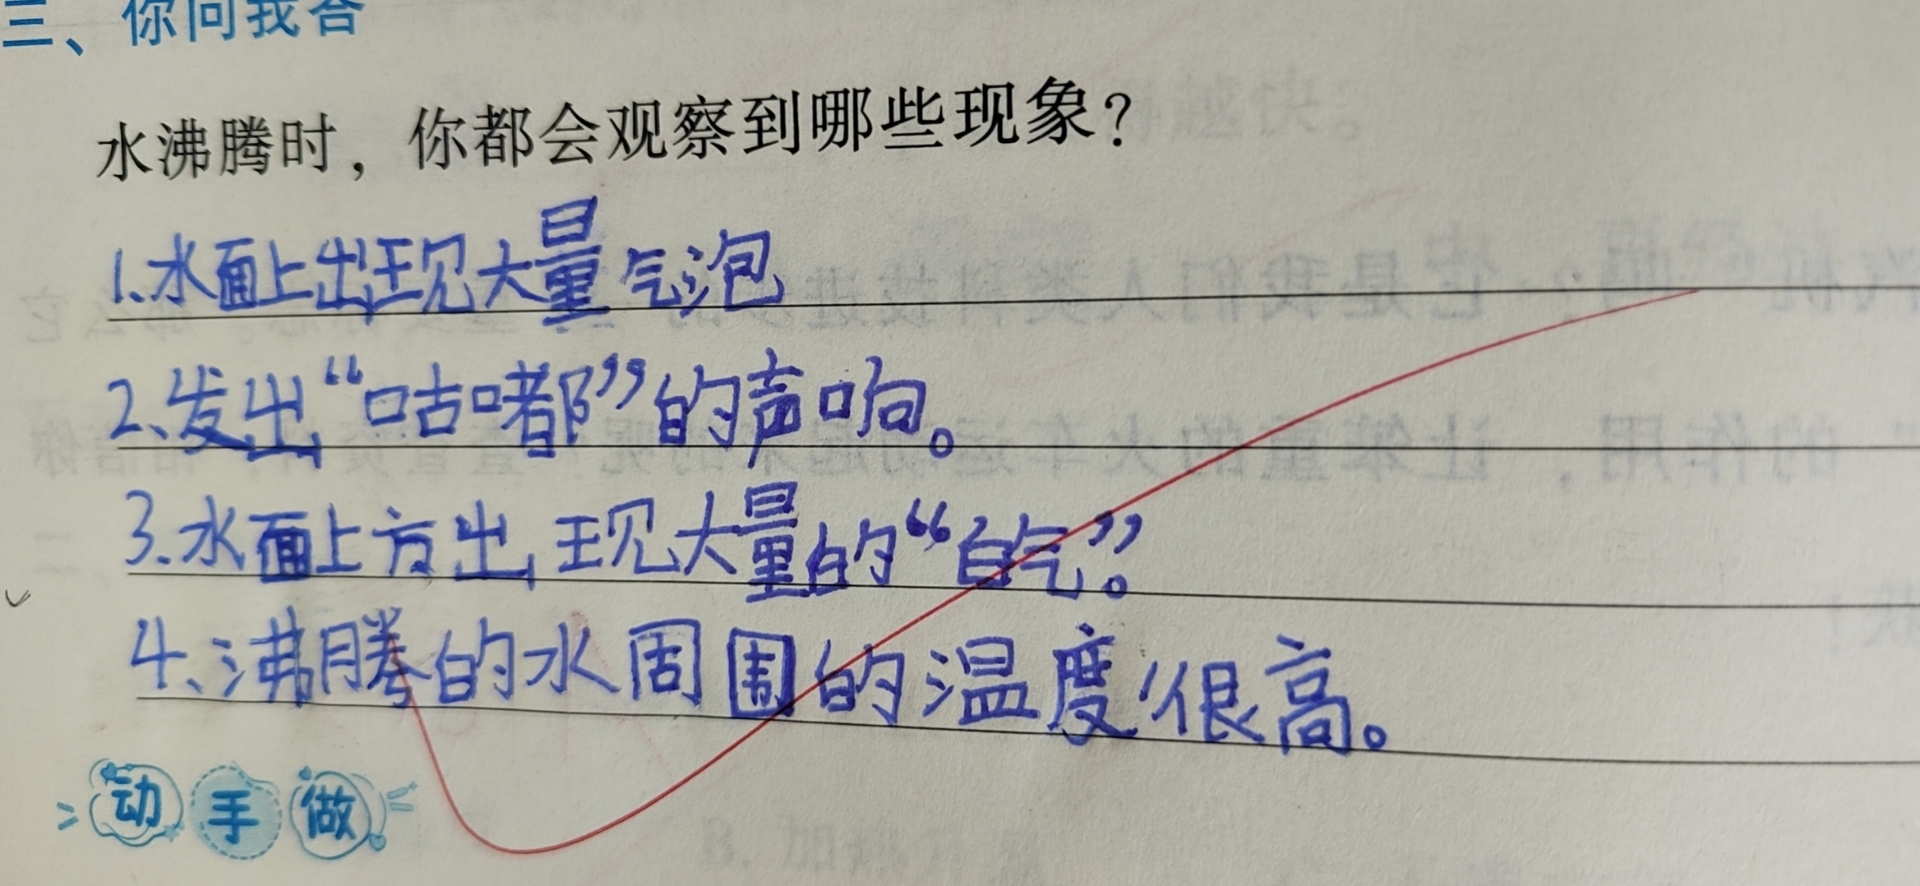 三、你问我答
水沸腾时，你都会观察到哪些现象？
1.水面上出现大量气泡
2、发出“咕嘟”的声响。
3.水面上方出现大量的“白气”。
4、沸腾的水周围的温度很高。
动手做